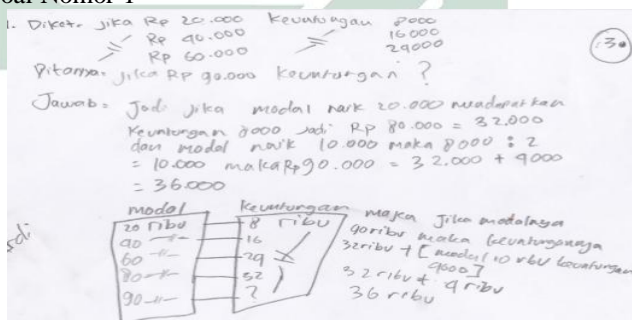 oal Nomor 1
1. Diket. Jika Rp 20.000 keuntungan 8000
Rp 40.000 16000
Rp 60.000 24000
Ditanya. Jika Rp 90.000 keuntungan ?
30
Jawab = Jadi jika modal naik 20.000 mendapatkan
keuntungan 8000 jadi Rp 80.000 = 32.000
dan modal naik 10.000 maka 8000 : 2
= 10.000 maka Rp 90.000 = 32.000 + 4000
= 36.000
modal keuntungan
20 ribu 8 ribu
40 -"- 16
60 -"- 24
80 -"- 32
90 -"- ?
maka jika modalnya
90 ribu maka keuntungannya
32 ribu + [modal 10 ribu keuntungan
4000]
32 ribu + 4 ribu
36 ribu